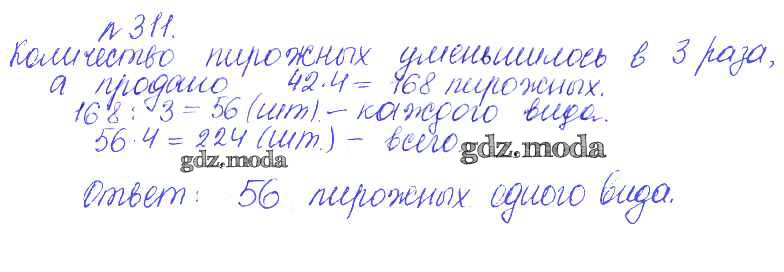 № 311.
Количество пирожных уменьшилось в 3 раза,
а продано 42·4 = 168 пирожных.
168 : 3 = 56 (шт.) – каждого вида.
56·4 = 224 (шт.) – всего
gdz.moda gdz.moda
Ответ: 56 пирожных одного вида.